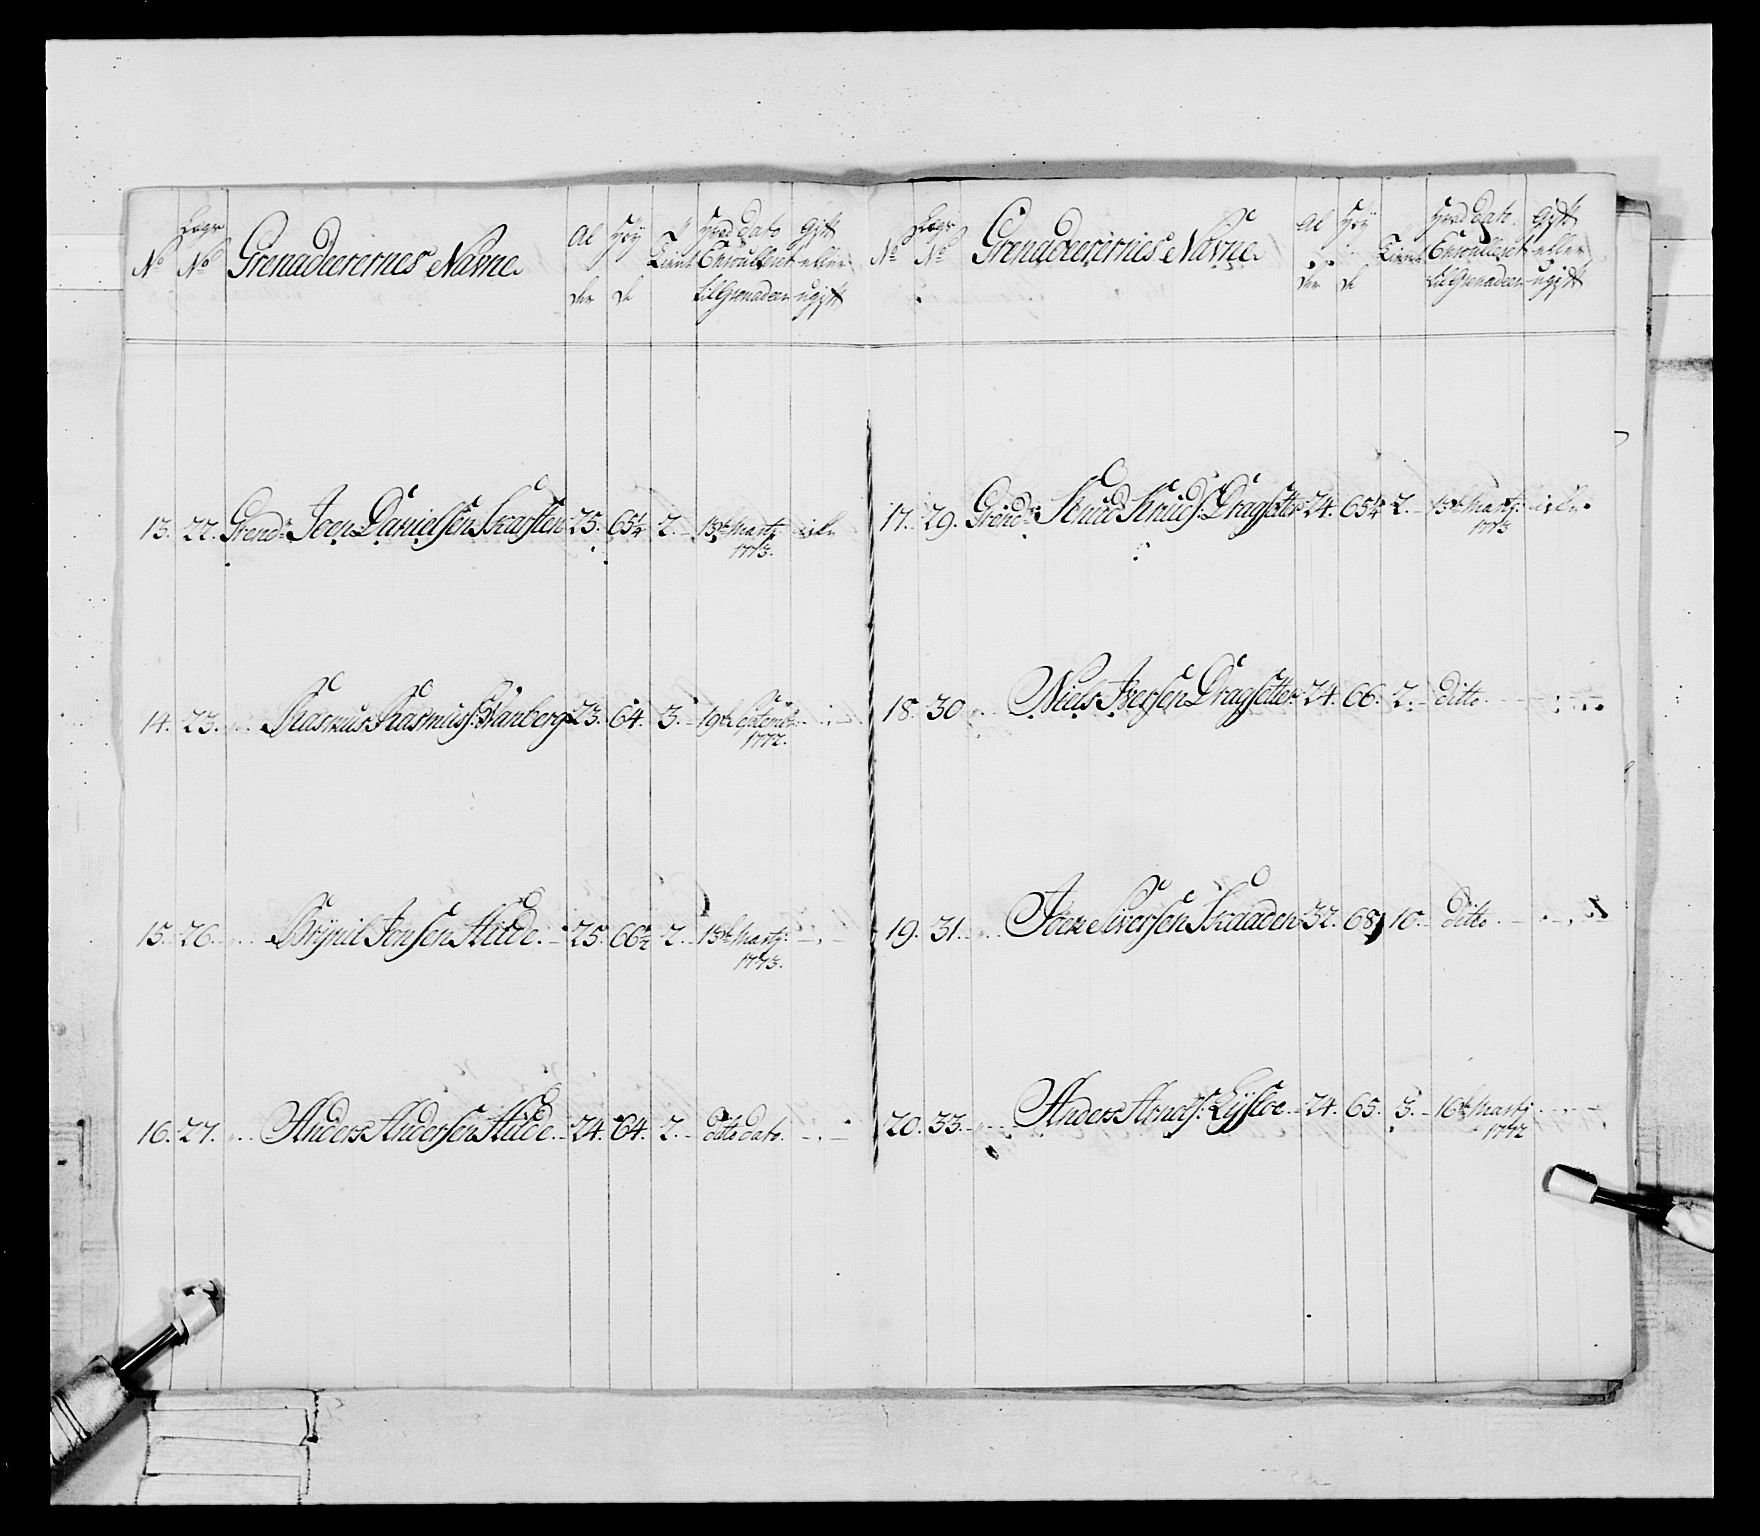 No Lægs No Grenadeerernes Navne Al der Høy de Tient Hvad dato Enroullert til Grenadeer Gift eller ugift
13. 22. Grendr Joen Danielsen Skarsten 25. 65¼ 2. 13de Martj
1773.
14. 23. Rasmus Rasmuss: 23. 64. 3. 19de Septembr
1772.
15. 26. Brynil Jonsen Hilde. 25. 66½ 2. 13de Martj
1773.
16. 27. Anders Andersen Hilde. 24. 64. 2. ditto dato.
No Lægs No Grenadeerernes Navne Al der Høy de Tient Hvad dato Enroullert til Grenadeer Gift eller ugift
17. 29. Grendr Knud Knuds: Dragsetter 24. 65¼ 2. 13de Martj
1773
18. 30 Niels Iversen Dragsetter 24. 66. 2. ditto.
19. 31. Joen Siversen Skaaden 32. 68 10. ditto.
20. 33. Anders 24. 65. 3. 16de Martj
1772